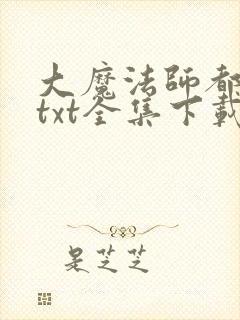 大魔法師都
txt全集下載
是芝芝